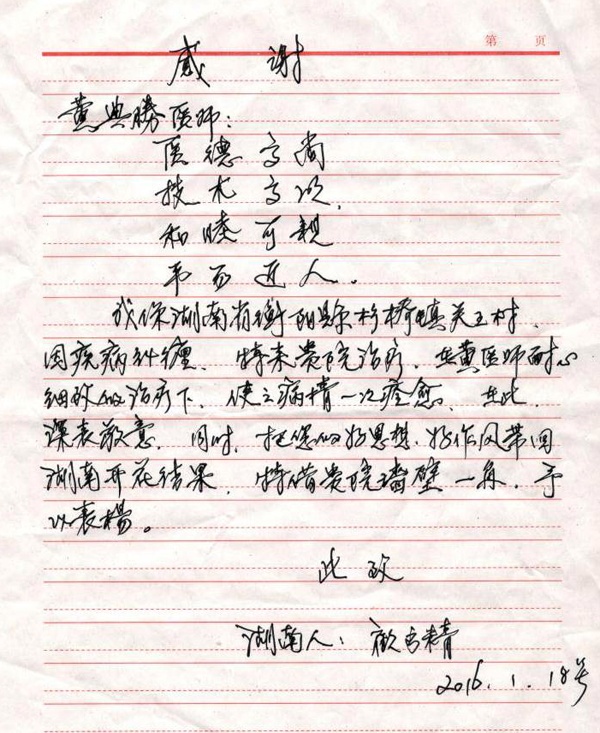 第 页
感 谢
黄典勝医师:
医德高尚
技术高收,
和睦可親
平易近人.
我係湖南省衡阳县杉桥镇关王村,
因疾病纠缠、特来贵院治疗.在黄医师耐心
细致的治疗下、使病情一次痊愈、在此、
深表敬意.同时,把您的好思想、好作风带回
湖南开花结果,特借贵院墙壁一角、予
以表扬。
此致
湖南人:
2016.1.18号